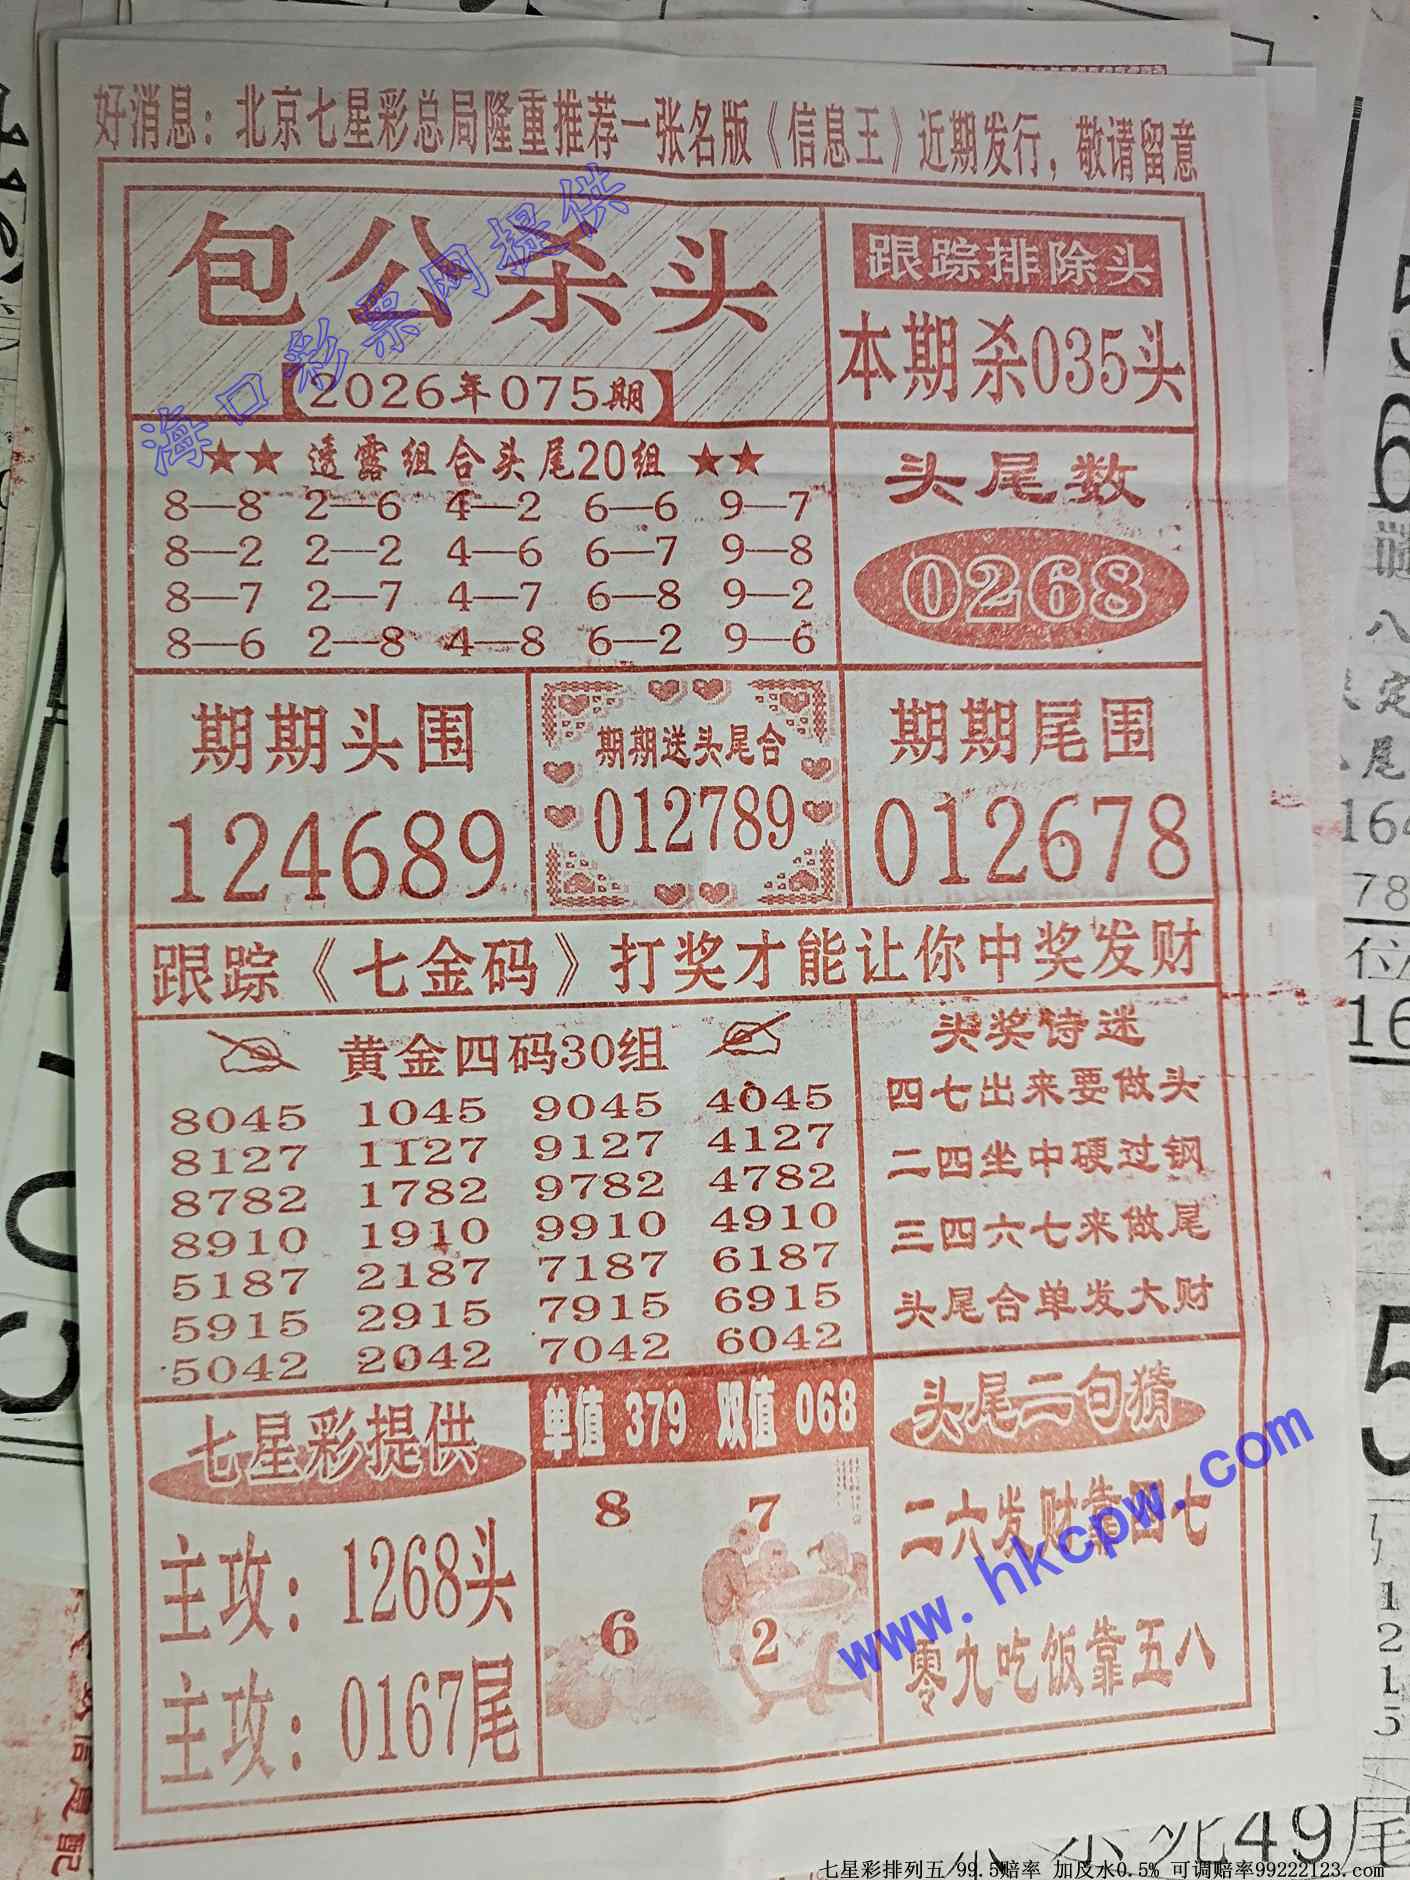 好消息：北京七星彩总局隆重推荐一张名版《信息王》近期发行，敬请留意
包公杀头
2026年075期
跟踪排除头
本期杀035头
★★ 透露组合头尾20组 ★★
8—8 2—6 4—2 6—6 9—7
8—2 2—2 4—6 6—7 9—8
8—7 2—7 4—7 6—8 9—2
8—6 2—8 4—8 6—2 9—6
头尾数
0268
期期头围
124689
期期送头尾合
012789
期期尾围
012678
跟踪《七金码》打奖才能让你中奖发财
黄金四码30组
8045 1045 9045 4045
8127 1127 9127 4127
8782 1782 9782 4782
8910 1910 9910 4910
5187 2187 7187 6187
5915 2915 7915 6915
5042 2042 7042 6042
头奖诗迷
四七出来要做头
二四坐中硬过钢
三四六七来做尾
头尾合单发大财
七星彩提供
主攻：1268头
主攻：0167尾
单值 379 双值 068
8 7
6 2
头尾二句猜
二六发财靠四七
零九吃饭靠五八
海口彩票网提供
www.hkcpw.com
49尾
七星彩排列五 99.5赔率 加反水0.5% 可调赔率99222123.com